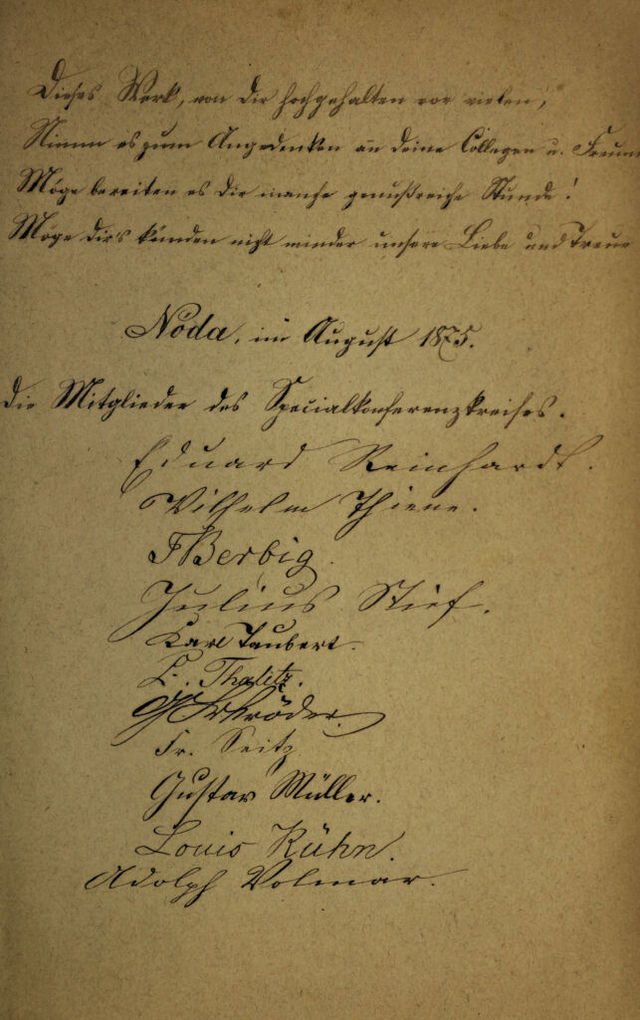 Dieses Werk, von Dir hochgehalten vor vielen,
Nimm es zum Angedenken an deine Collegen u. Freun
Möge bereiten es Dir manche genußreiche Stunde!
Möge dir's künden nicht minder unsere Liebe und Treue
Noda, im August 1875.
Die Mitglieder des Specialkonferenzkreises.
Eduard Reinhardt.
Wilhelm Thiene.
F Berbig.
Julius Stief.
Karl Taubert.
L. Thalitz.
Schröder.
Fr. Seitz
Gustav Müller.
Louis Kühn.
Adolph Volmar.